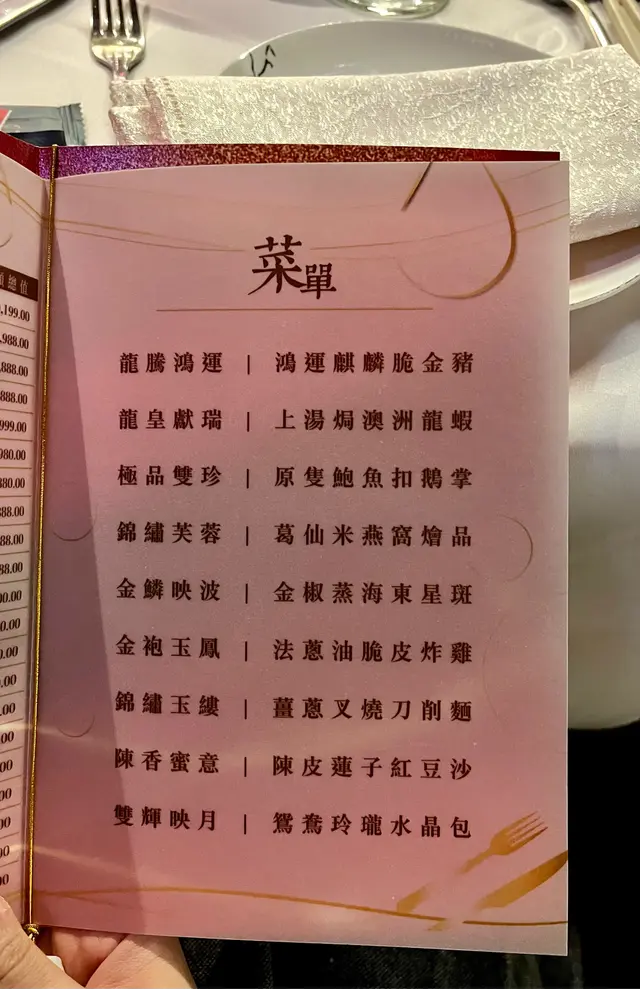 總值
,199.00
,988.00
,888.00
888.00
999.00
980.00
880.00
888.00
88.00
88.00
00.00
0.00
0.00
.00
.00
00
00
00
00
0
菜單
龍騰鴻運 | 鴻運麒麟脆金豬
龍皇獻瑞 | 上湯焗澳洲龍蝦
極品雙珍 | 原隻鮑魚扣鵝掌
錦繡芙蓉 | 葛仙米燕窩燴品
金鱗映波 | 金椒蒸海東星斑
金袍玉鳳 | 法蔥油脆皮炸雞
錦繡玉縷 | 薑蔥叉燒刀削麵
陳香蜜意 | 陳皮蓮子紅豆沙
雙輝映月 | 鴛鴦玲瓏水晶包